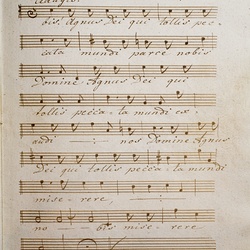 Adagio.
bis. Agnus Dei qui tollis pec-
cata mundi parce nobis
Domine Agnus Dei qui
tollis pecca-ta mundi ex-
audi -:- nos Domine Agnus
Dei qui tollis pecca-ta mundi
mise-rere, -:-
no - bis mise-rere